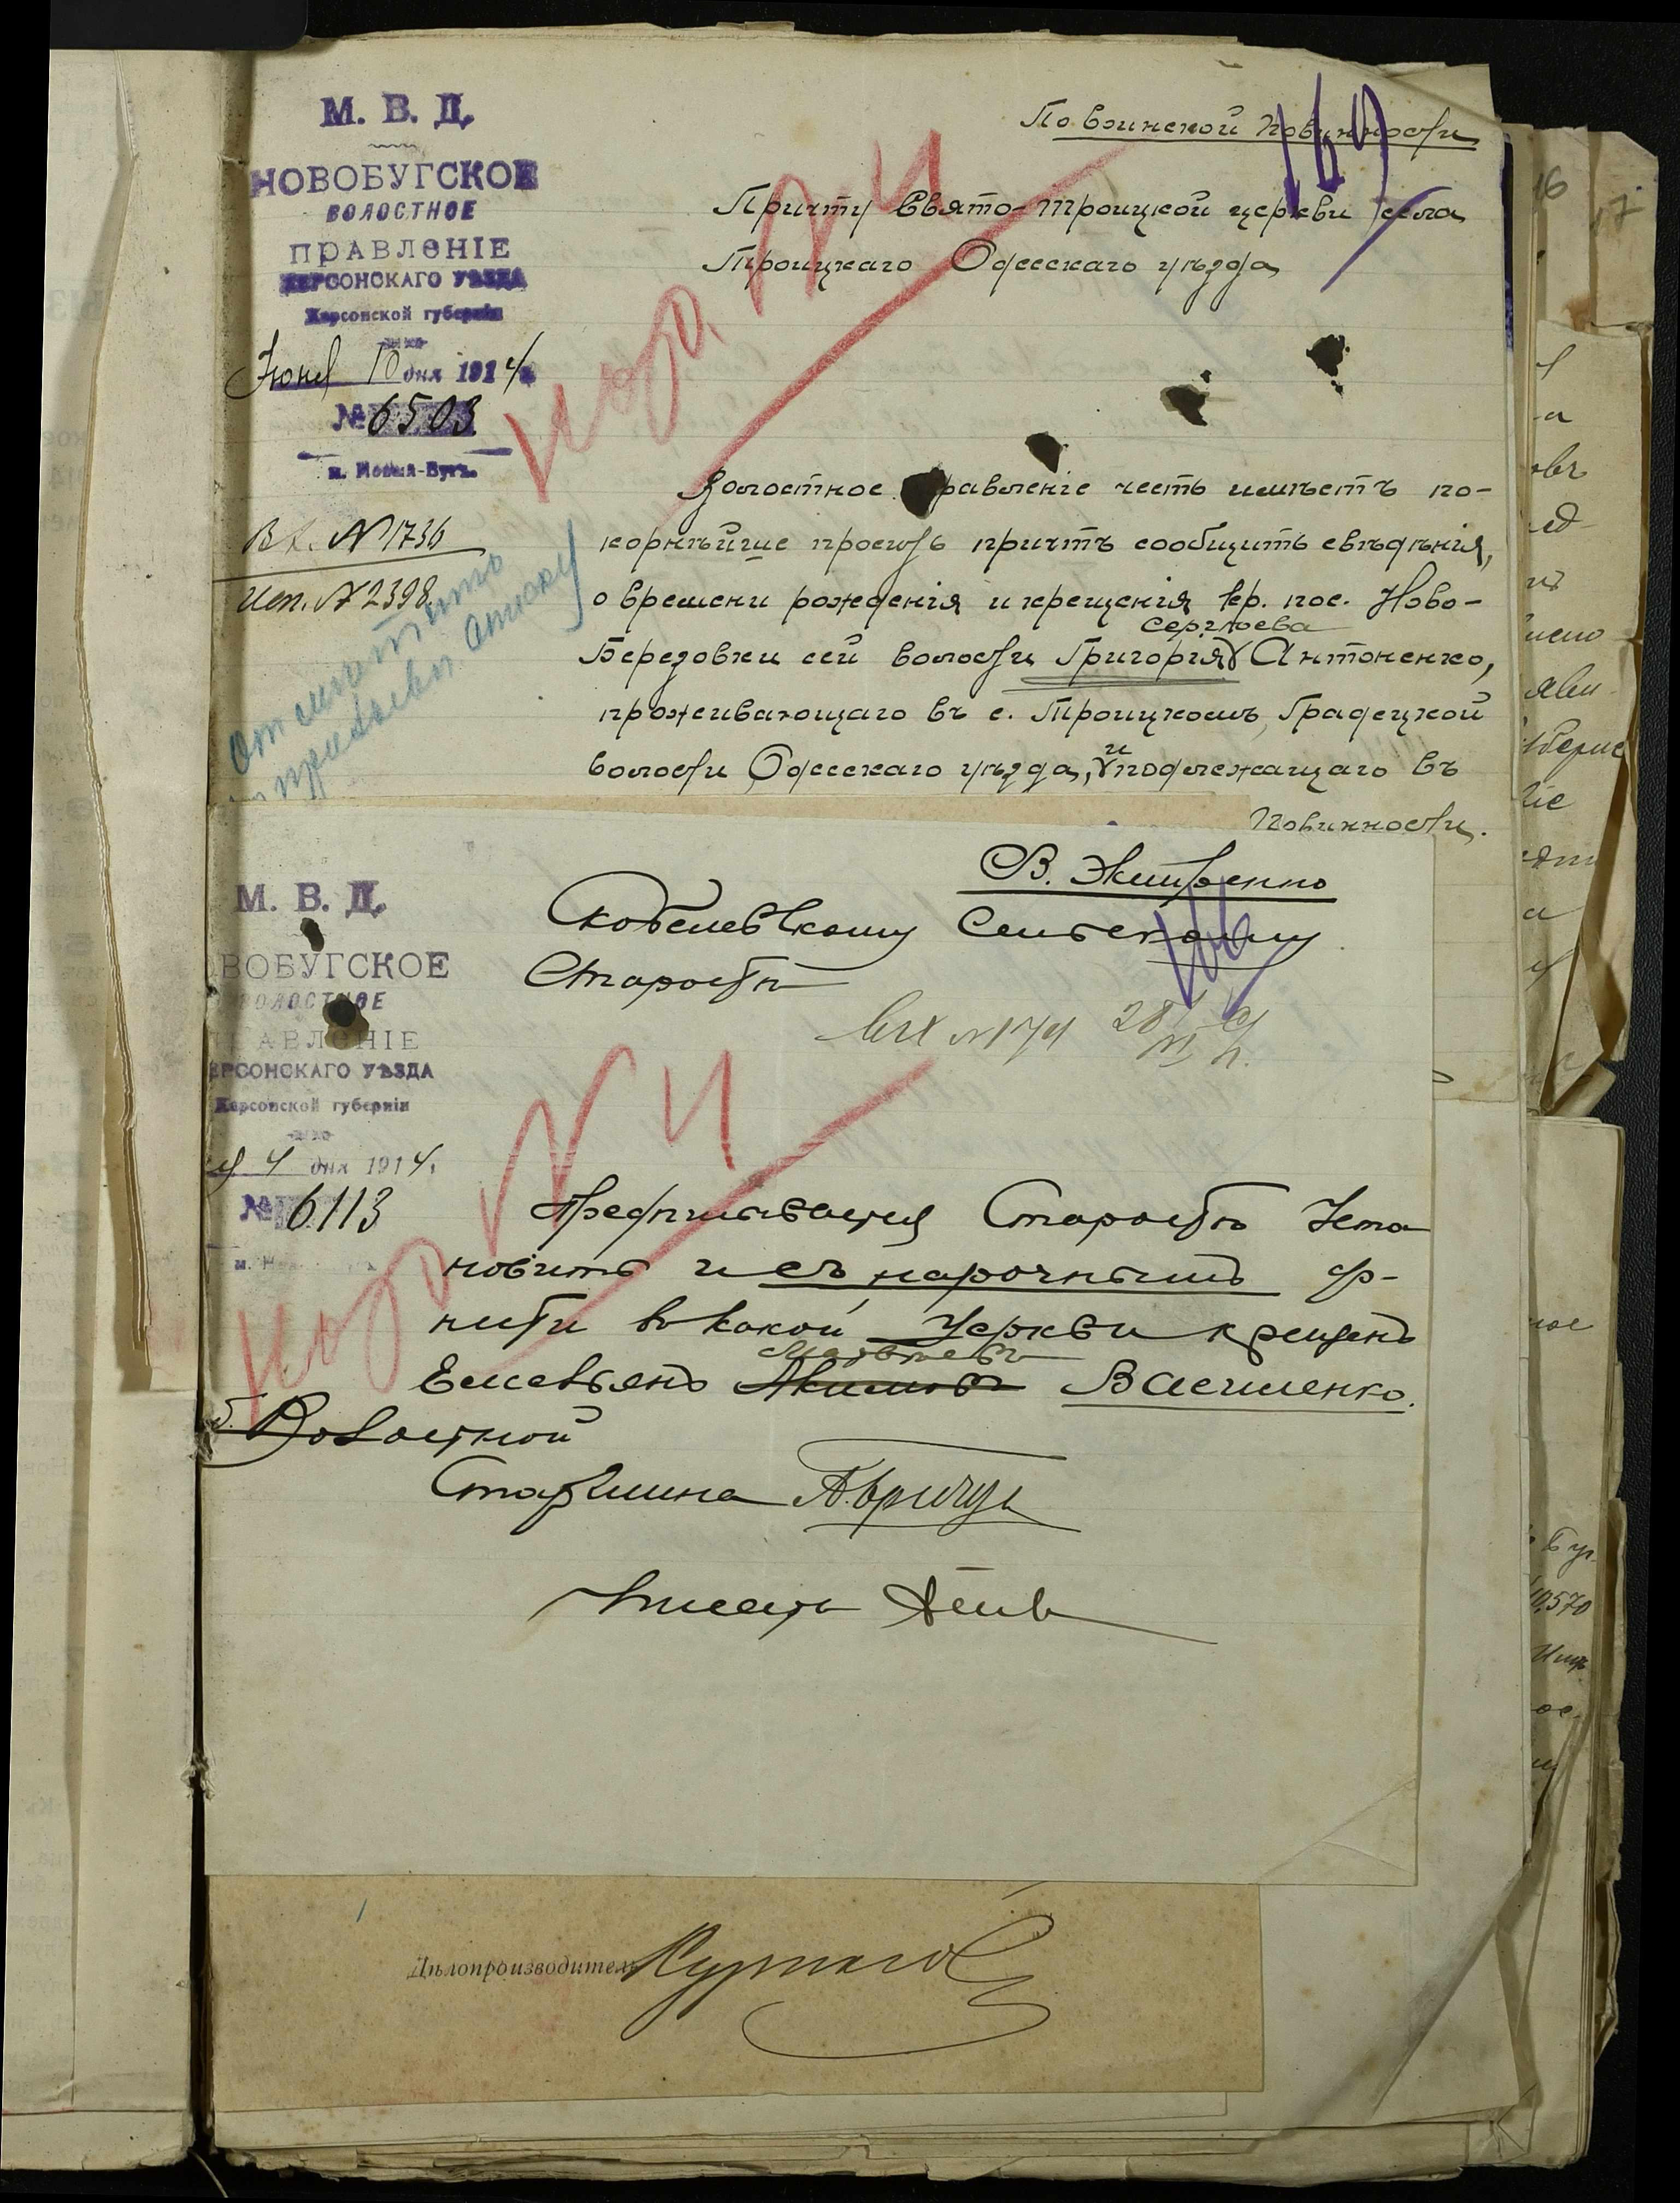 М. В. Д.
НОВОБУГСКОЕ
ВОЛОСТНОЕ
ПРАВЛЕНІЕ
ХЕРСОНСКАГО УѢЗДА
Херсонской губерніи
Іюня 10 дня 1914 г.
№ 6503
м. Новый-Бугъ.
Вх. № 1736
Исп. № 2398.
По воинской повинности
169
Причту Свято-Троицкой церкви села
Троицкаго Одесскаго уѣзда
Волостное Правленіе честь имѣетъ по-
корнѣйше просить причтъ сообщить свѣдѣнія,
о времени рожденія и крещенія кр. пос. Ново-
Сергѣева
Березовки сей волости Григорія Антоненко,
проживающаго въ с. Троицкомъ, Градецкой
волости, Одесскаго уѣзда, и подлежащаго въ
повинности.
отмѣтить
М. В. Д.
ВОБУГСКОЕ
ВОЛОСТНОЕ
РАВЛЕНІЕ
ЕРСОНСКАГО УѢЗДА
Херсонской губерніи
4 дня 1914 г.
№ 6113
В. Экстренно
Скобелевскому Сельскому
Старостѣ
Вх № 174 28
Предписывается Старостѣ Уста
новить и съ нарочнымъ
въ какой Церкви крещенъ
Матвѣевъ
Емельянъ Акимовъ Васименко.
Волостной
Старшина
Писарь
Дѣлопроизводитель